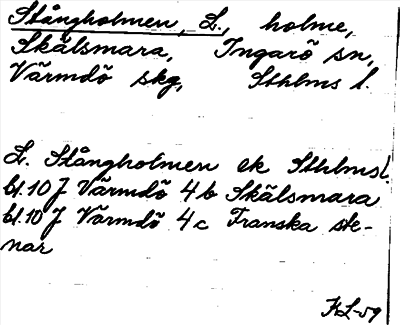 Stångholmen, L., holme,
Skälsmara, Ingarö sn,
Värmdö skg, Sthlms l.
L. Stångholmen ek Sthlms l.
bl. 10 J Värmdö 4 b Skälsmara
bl. 10 J Värmdö 4 c Franska ste-
nar
KL-59